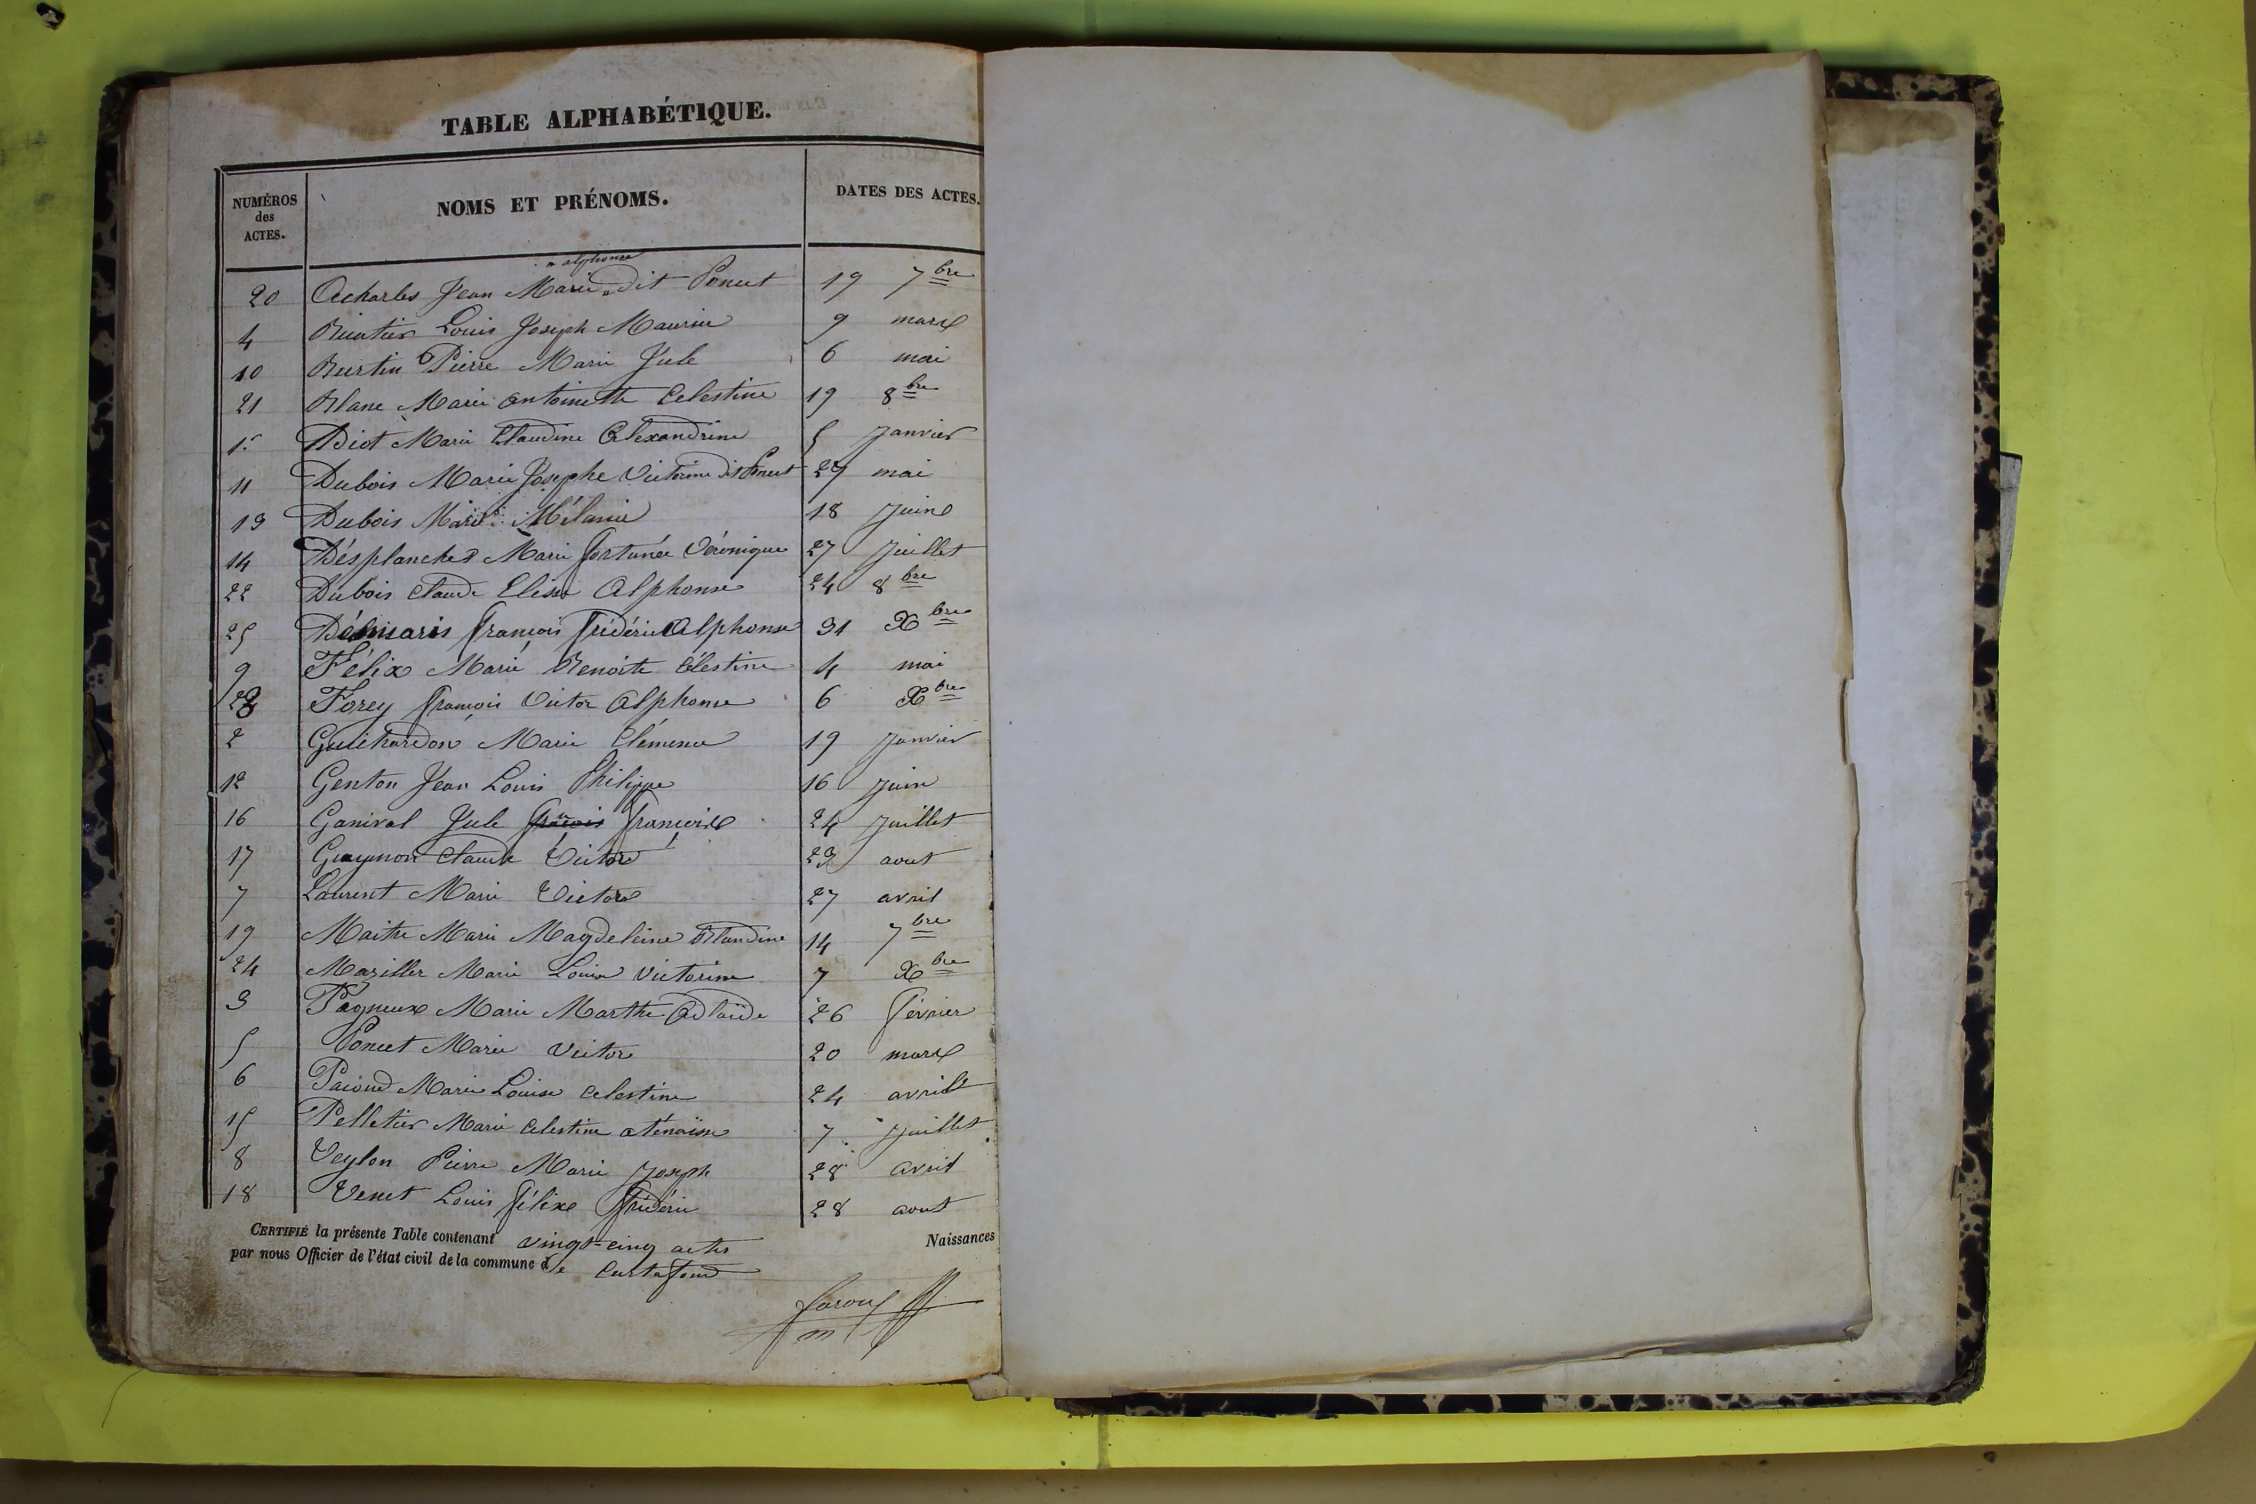 TABLE ALPHABÉTIQUE.
NUMÉROS des ACTES. NOMS ET PRÉNOMS. DATES DES ACTES.
alphonse
20 Acharles Jean Marie dit Poncet 19 7bre
4 Louis Joseph Maurice 9 mars
10 Burtin Pierre Marie Jule 6 mai
21 Blanc Marie antoinette Celestine 19 8bre
1er Marie Claudine Alexandrine 5 Janvier
11 Dubois Marie Josephe Victorine dit Poncet 29 mai
13 Dubois Marie Mélanie 18 Juin
14 Désplanches Marie fortunée Véronique 27 Juillet
22 Dubois Claude Elisé Alphonse 24 8bre
25 françois frédéric Alphonse 31 Xbre
9 Félix Marie Benoite Célestine 4 mai
23 Forey françois Victor Alphonse 6 Xbre
2 Guichardon Marie Clémence 19 Janvier
12 Genton Jean Louis Philippe 16 Juin
16 Ganival Jule françois 24 Juillet
17 Guymon Claude Victor 23 aout
7 Laurent Marie Victor 27 avril
19 Maitre Marie Magdeleine Blandine 14 7bre
24 Maziller Marie Louise Victorine 7 Xbre
3 Pagneux Marie Marthe Adlaïde 26 février
5 Poncet Marie Victor 20 mars
6 Marie Louise Celestine 24 avril
15 Pelletier Marie Celestine aténaïse 7 Juillet
8 Veylon Pierre Marie Joseph 28 avril
18 Venet Louis félix frédéric 28 aout
CERTIFIÉ la présente Table contenant vingt-cinq actes Naissances
par nous Officier de l'état civil de la commune de Curtafond